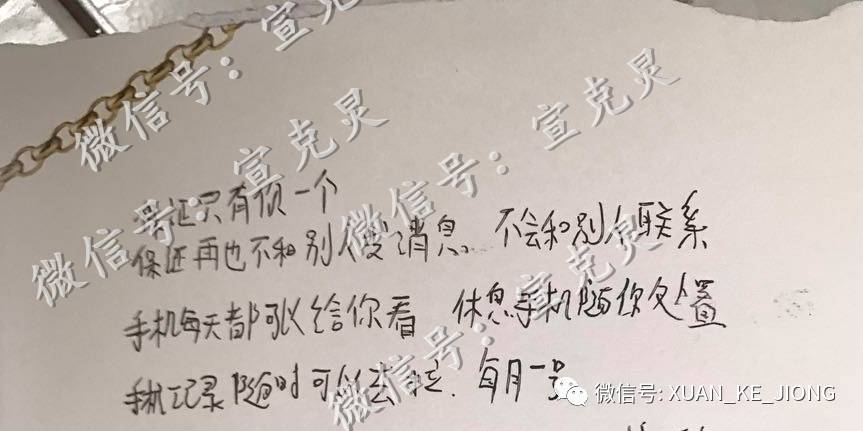 保证只有你一个
保证再也不和别人发消息 不会和别个联系
手机每天都可以给你看 休息手机随你处置
手机记录随时可以去拉. 每月一号
微信号：宣克灵
微信号：宣克灵
微信号：宣克灵
微信号：宣克灵
微信号: XUAN_KE_JIONG